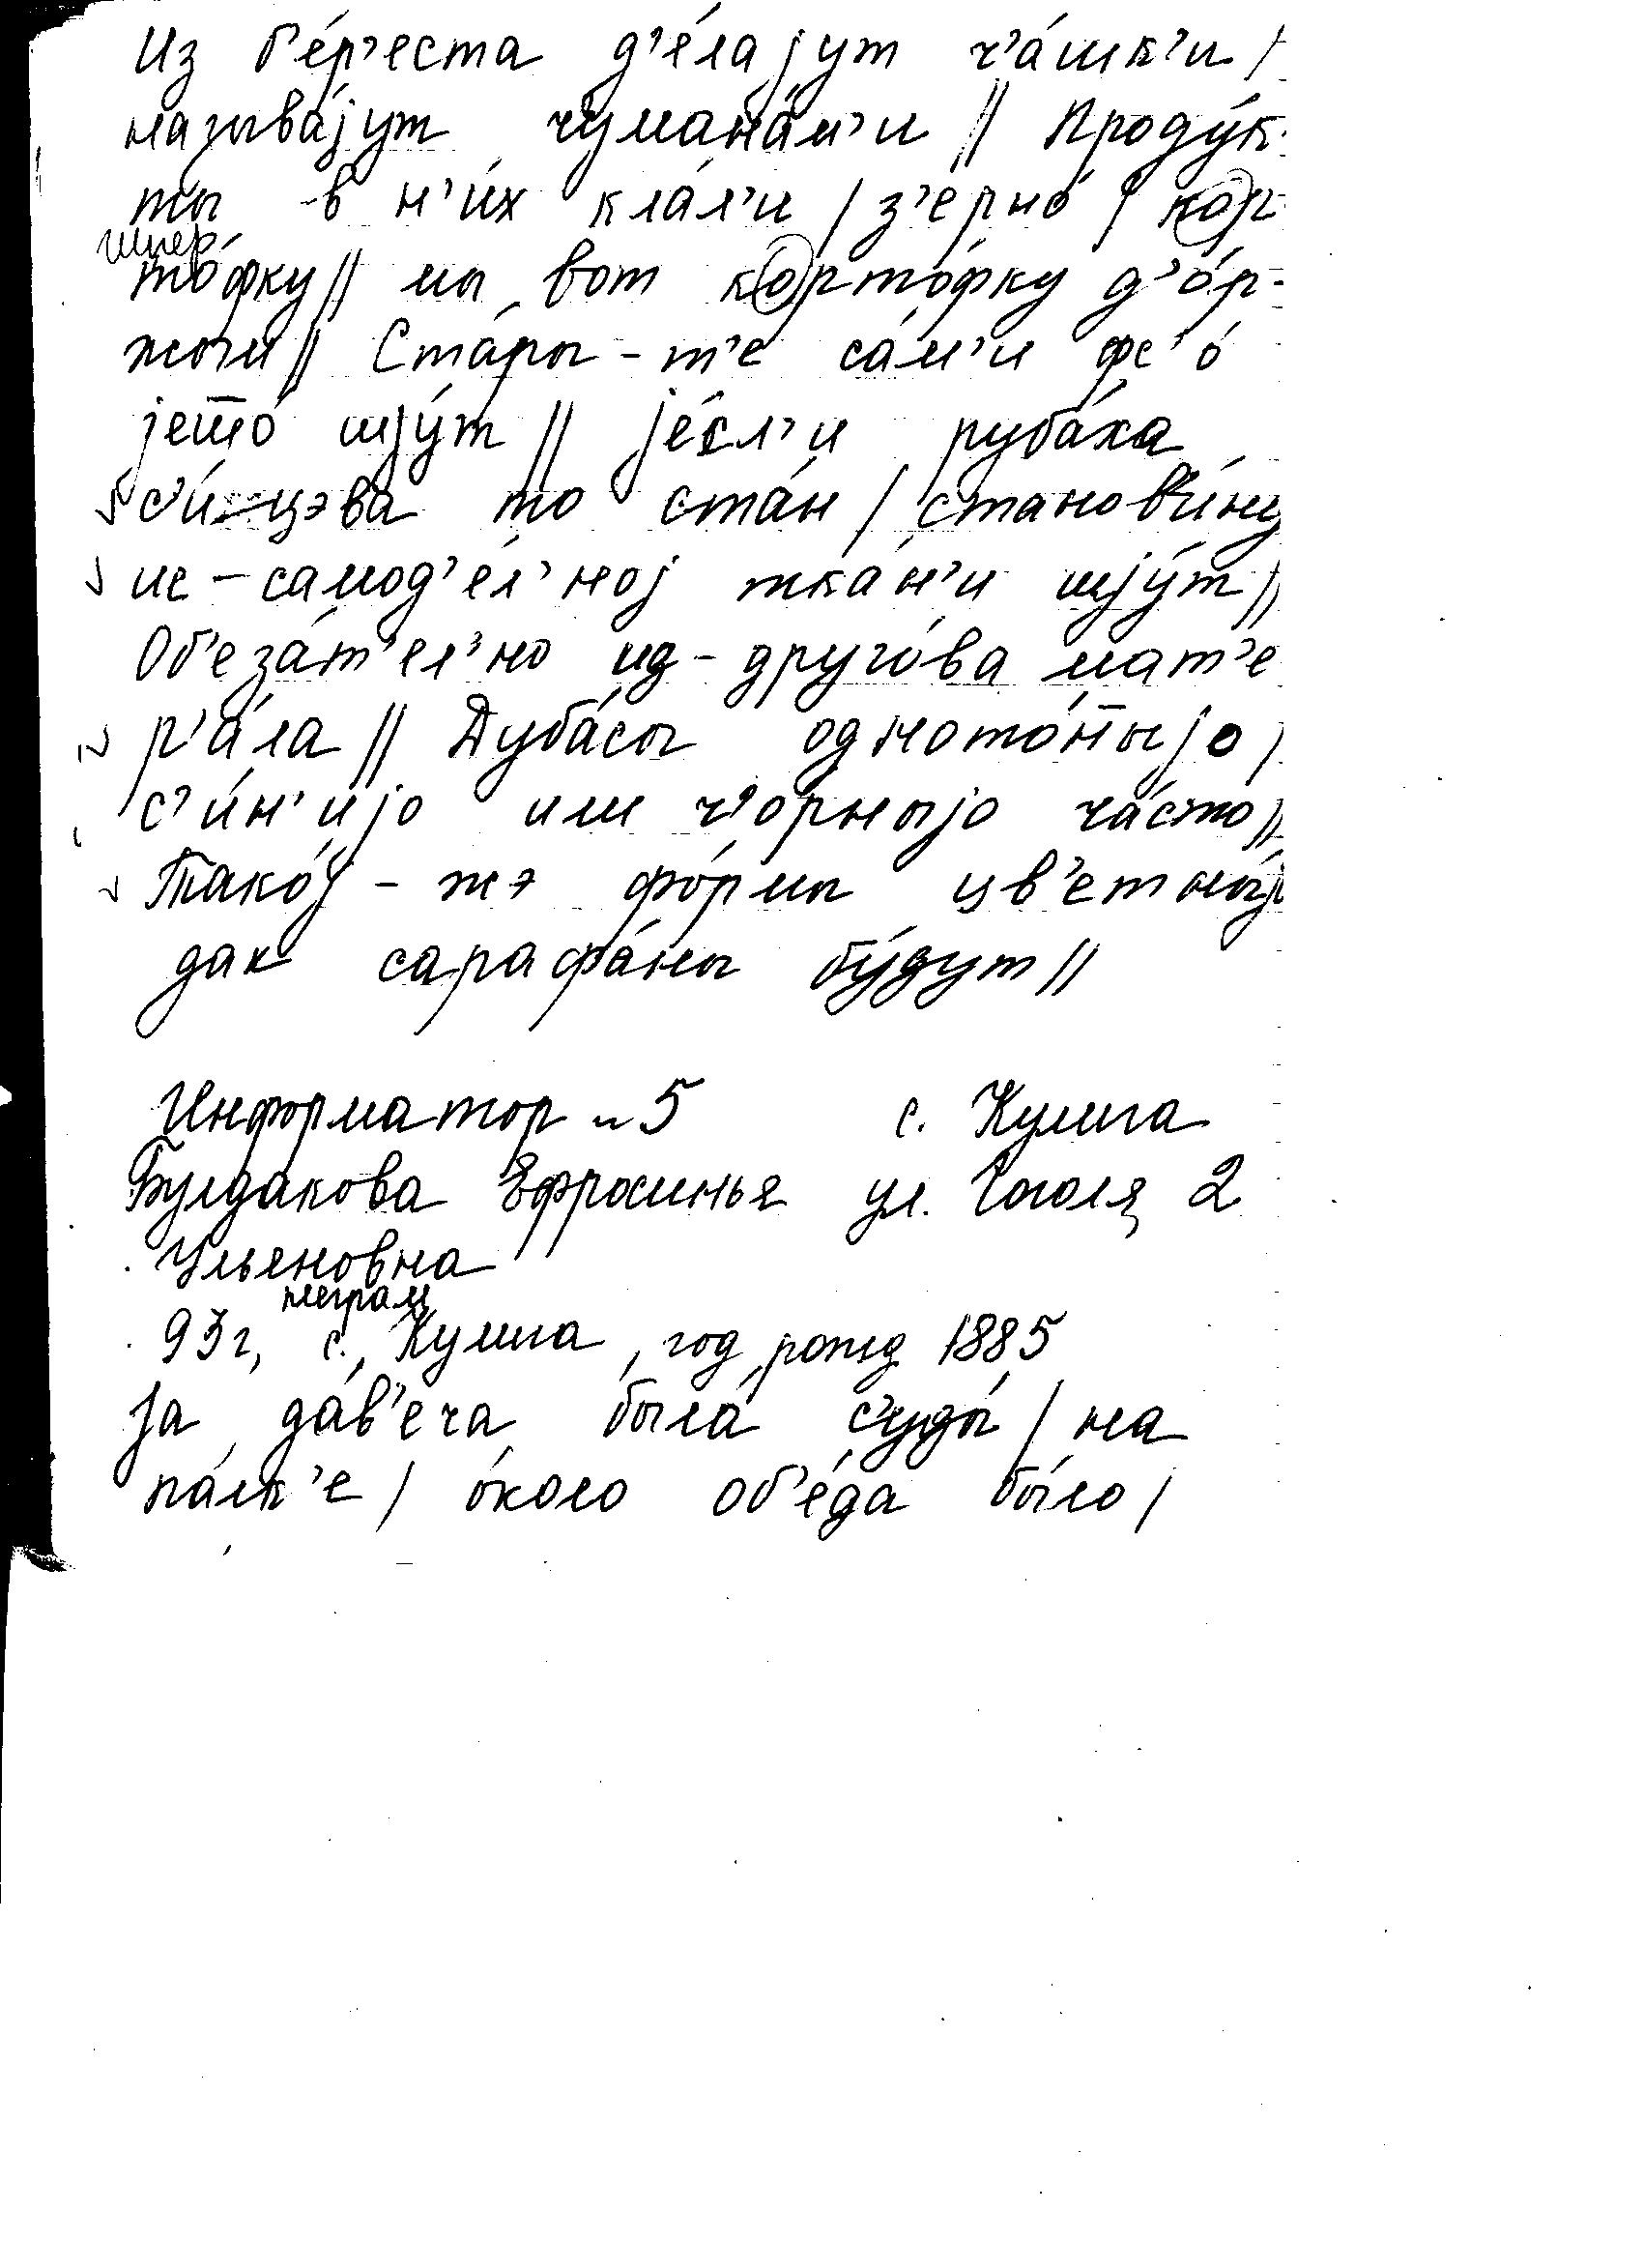 Из б'е́р'еста д'е́лаjут ч'а́шк'и /
называ́jут чумана́м'и // Проду́к-
ты в н'и́х кла́л'и / з'ерно́ / кор-
гипер
то́фку // мы вот корто́фку д'о́р-
жом // Ста́ры-т'е са́м'и фс'о́
jето́ шjу́т // jе́сл'и руба́ха
с'и́цэва то ста́н / станов'и́ну
ис-самод'е́л'ноj тка́н'и шjу́т //
Об'еза́т'ел'но ид-друго́ва мат'е
р'а́ла // Дуба́сы одното́н̄ыjо /
с'и́н'иjо или ч'о́рныjо ча́сто //
Тако́j-жэ фо́рмы цв'етны́j
дак сарафа́ны бу́дут //
Информатор № 5 с. Кулига
Булдакова Ефросинья ул. Гоголя, 2
Ульяновна
неграм
93 г, с. Кулига, год рожд 1885
jа да́в'еча была́ с'уды́ / на
па́лк'е / о́коло об'е́да бы́ло /